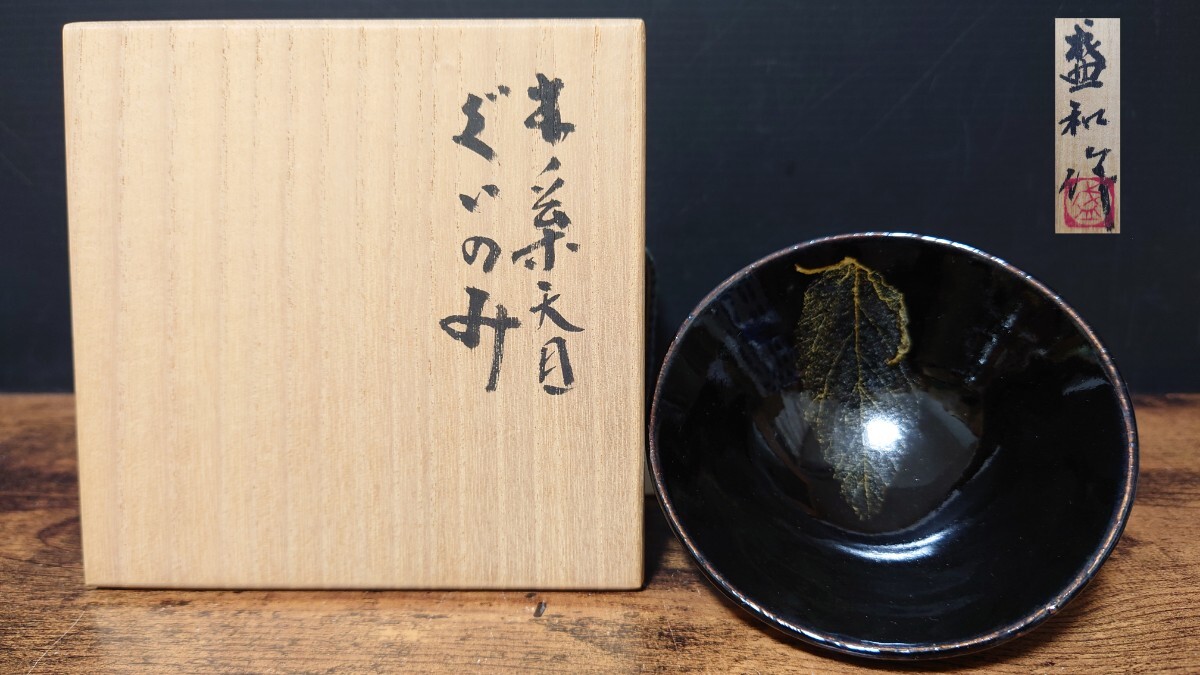 木ノ葉天目
ぐいのみ
盛和作